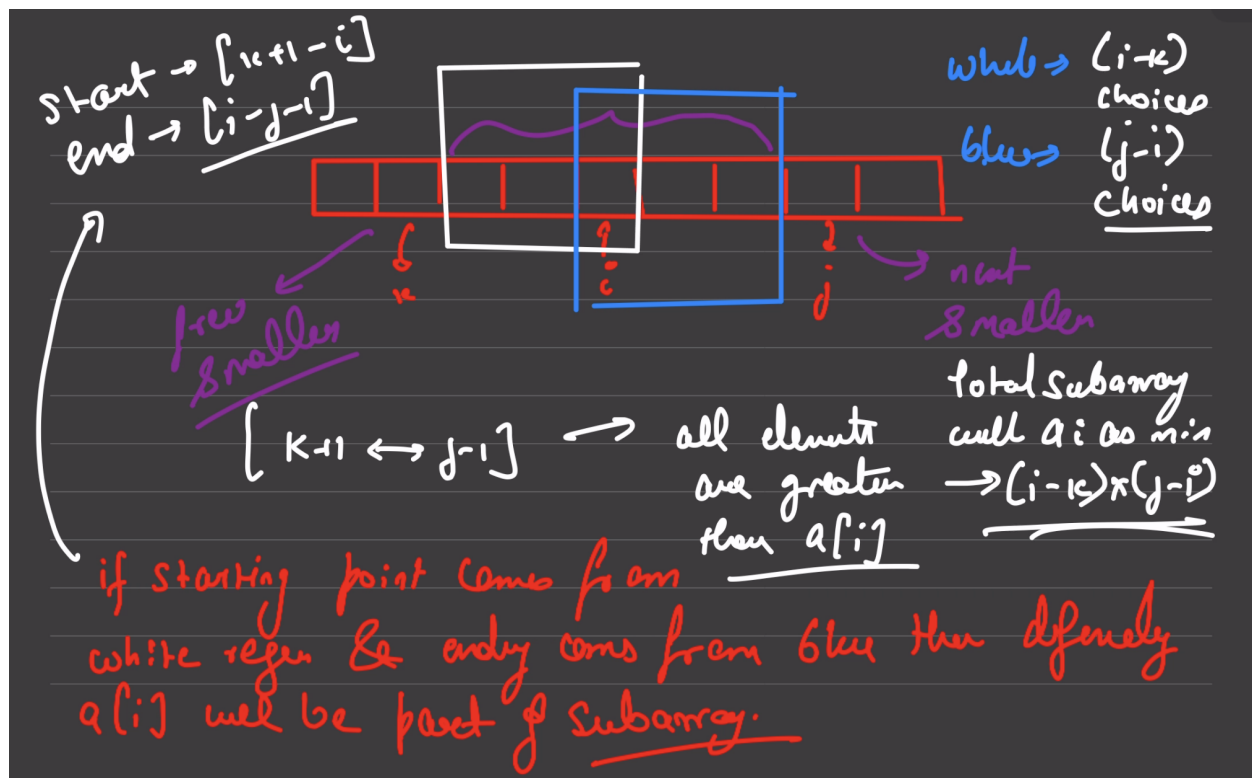 start → [k+1-i]
end → [i-j-1]
while → (i-k)
choices
blue → (j-i)
choices
k
i
j
prev
smaller
next
smaller
[K+1 ↔ j-1] →
all elements
are greater
than a[i]
Total Subarray
with ai as min
→ (i-k)*(j-i)
if starting point comes from
white regen & ending coms from blue then difenely
a[i] will be part of subarray.